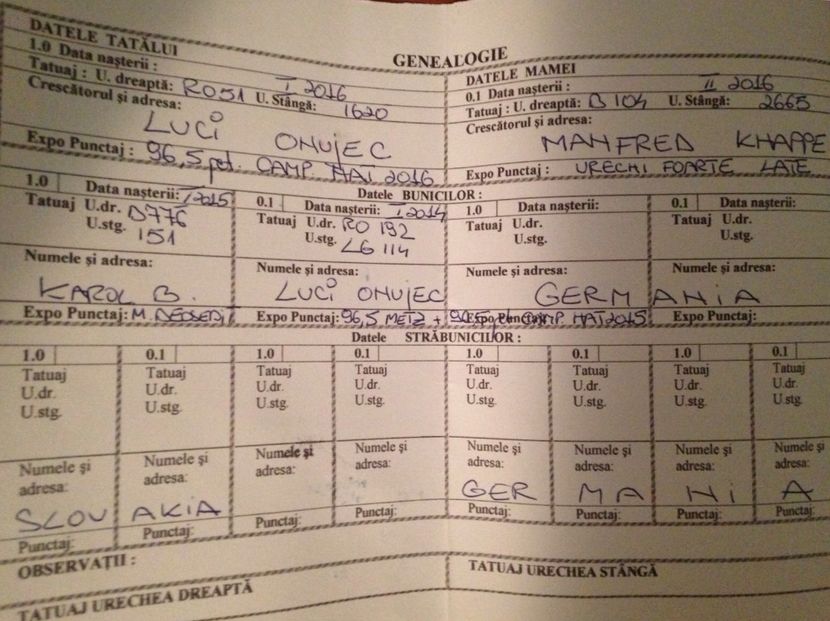 GENEALOGIE
DATELE TATĂLUI
1.0 Data naşterii : I 2016
Tatuaj : U. dreaptă: RO51 U. Stângă: 1620
Crescătorul şi adresa:
LUCI ONUJEC
Expo Punctaj : 96,5 pct. CAMP. NAT 2016
DATELE MAMEI
0.1 Data naşterii : II 2016
Tatuaj : U. dreaptă: B 104 U. Stângă: 2665
Crescătorul şi adresa:
MANFRED KNAPPE
Expo Punctaj : URECHI FOARTE LATE
Datele BUNICILOR :
1.0 Data naşterii: I 2015
Tatuaj U.dr. D776
U.stg. 151
Numele şi adresa:
KAROL B.
Expo Punctaj: M. DEOSEBIT
0.1 Data naşterii: I 2014
Tatuaj U.dr. RO 192
U.stg. LG 114
Numele şi adresa:
LUCI ONUJEC
Expo Punctaj: 96,5 METZ + CAMP. NAT 2015
1.0 Data naşterii:
Tatuaj U.dr.
U.stg.
Numele şi adresa:
GERMANIA
Expo Punctaj:
0.1 Data naşterii:
Tatuaj U.dr.
U.stg.
Numele şi adresa:
Expo Punctaj:
Datele STRĂBUNICILOR :
1.0 0.1 1.0 0.1 1.0 0.1 1.0 0.1
Tatuaj Tatuaj Tatuaj Tatuaj Tatuaj Tatuaj Tatuaj Tatuaj
U.dr. U.dr. U.dr. U.dr. U.dr. U.dr. U.dr. U.dr.
U.stg. U.stg. U.stg. U.stg. U.stg. U.stg. U.stg. U.stg.
Numele şi Numele şi Numele şi Numele şi Numele şi Numele şi Numele şi Numele şi
adresa: adresa: adresa: adresa: adresa: adresa: adresa: adresa:
SLOVAKIA GERMANIA
Punctaj: Punctaj: Punctaj: Punctaj: Punctaj: Punctaj: Punctaj: Punctaj:
OBSERVAŢII :
TATUAJ URECHEA DREAPTĂ
TATUAJ URECHEA STÂNGĂ